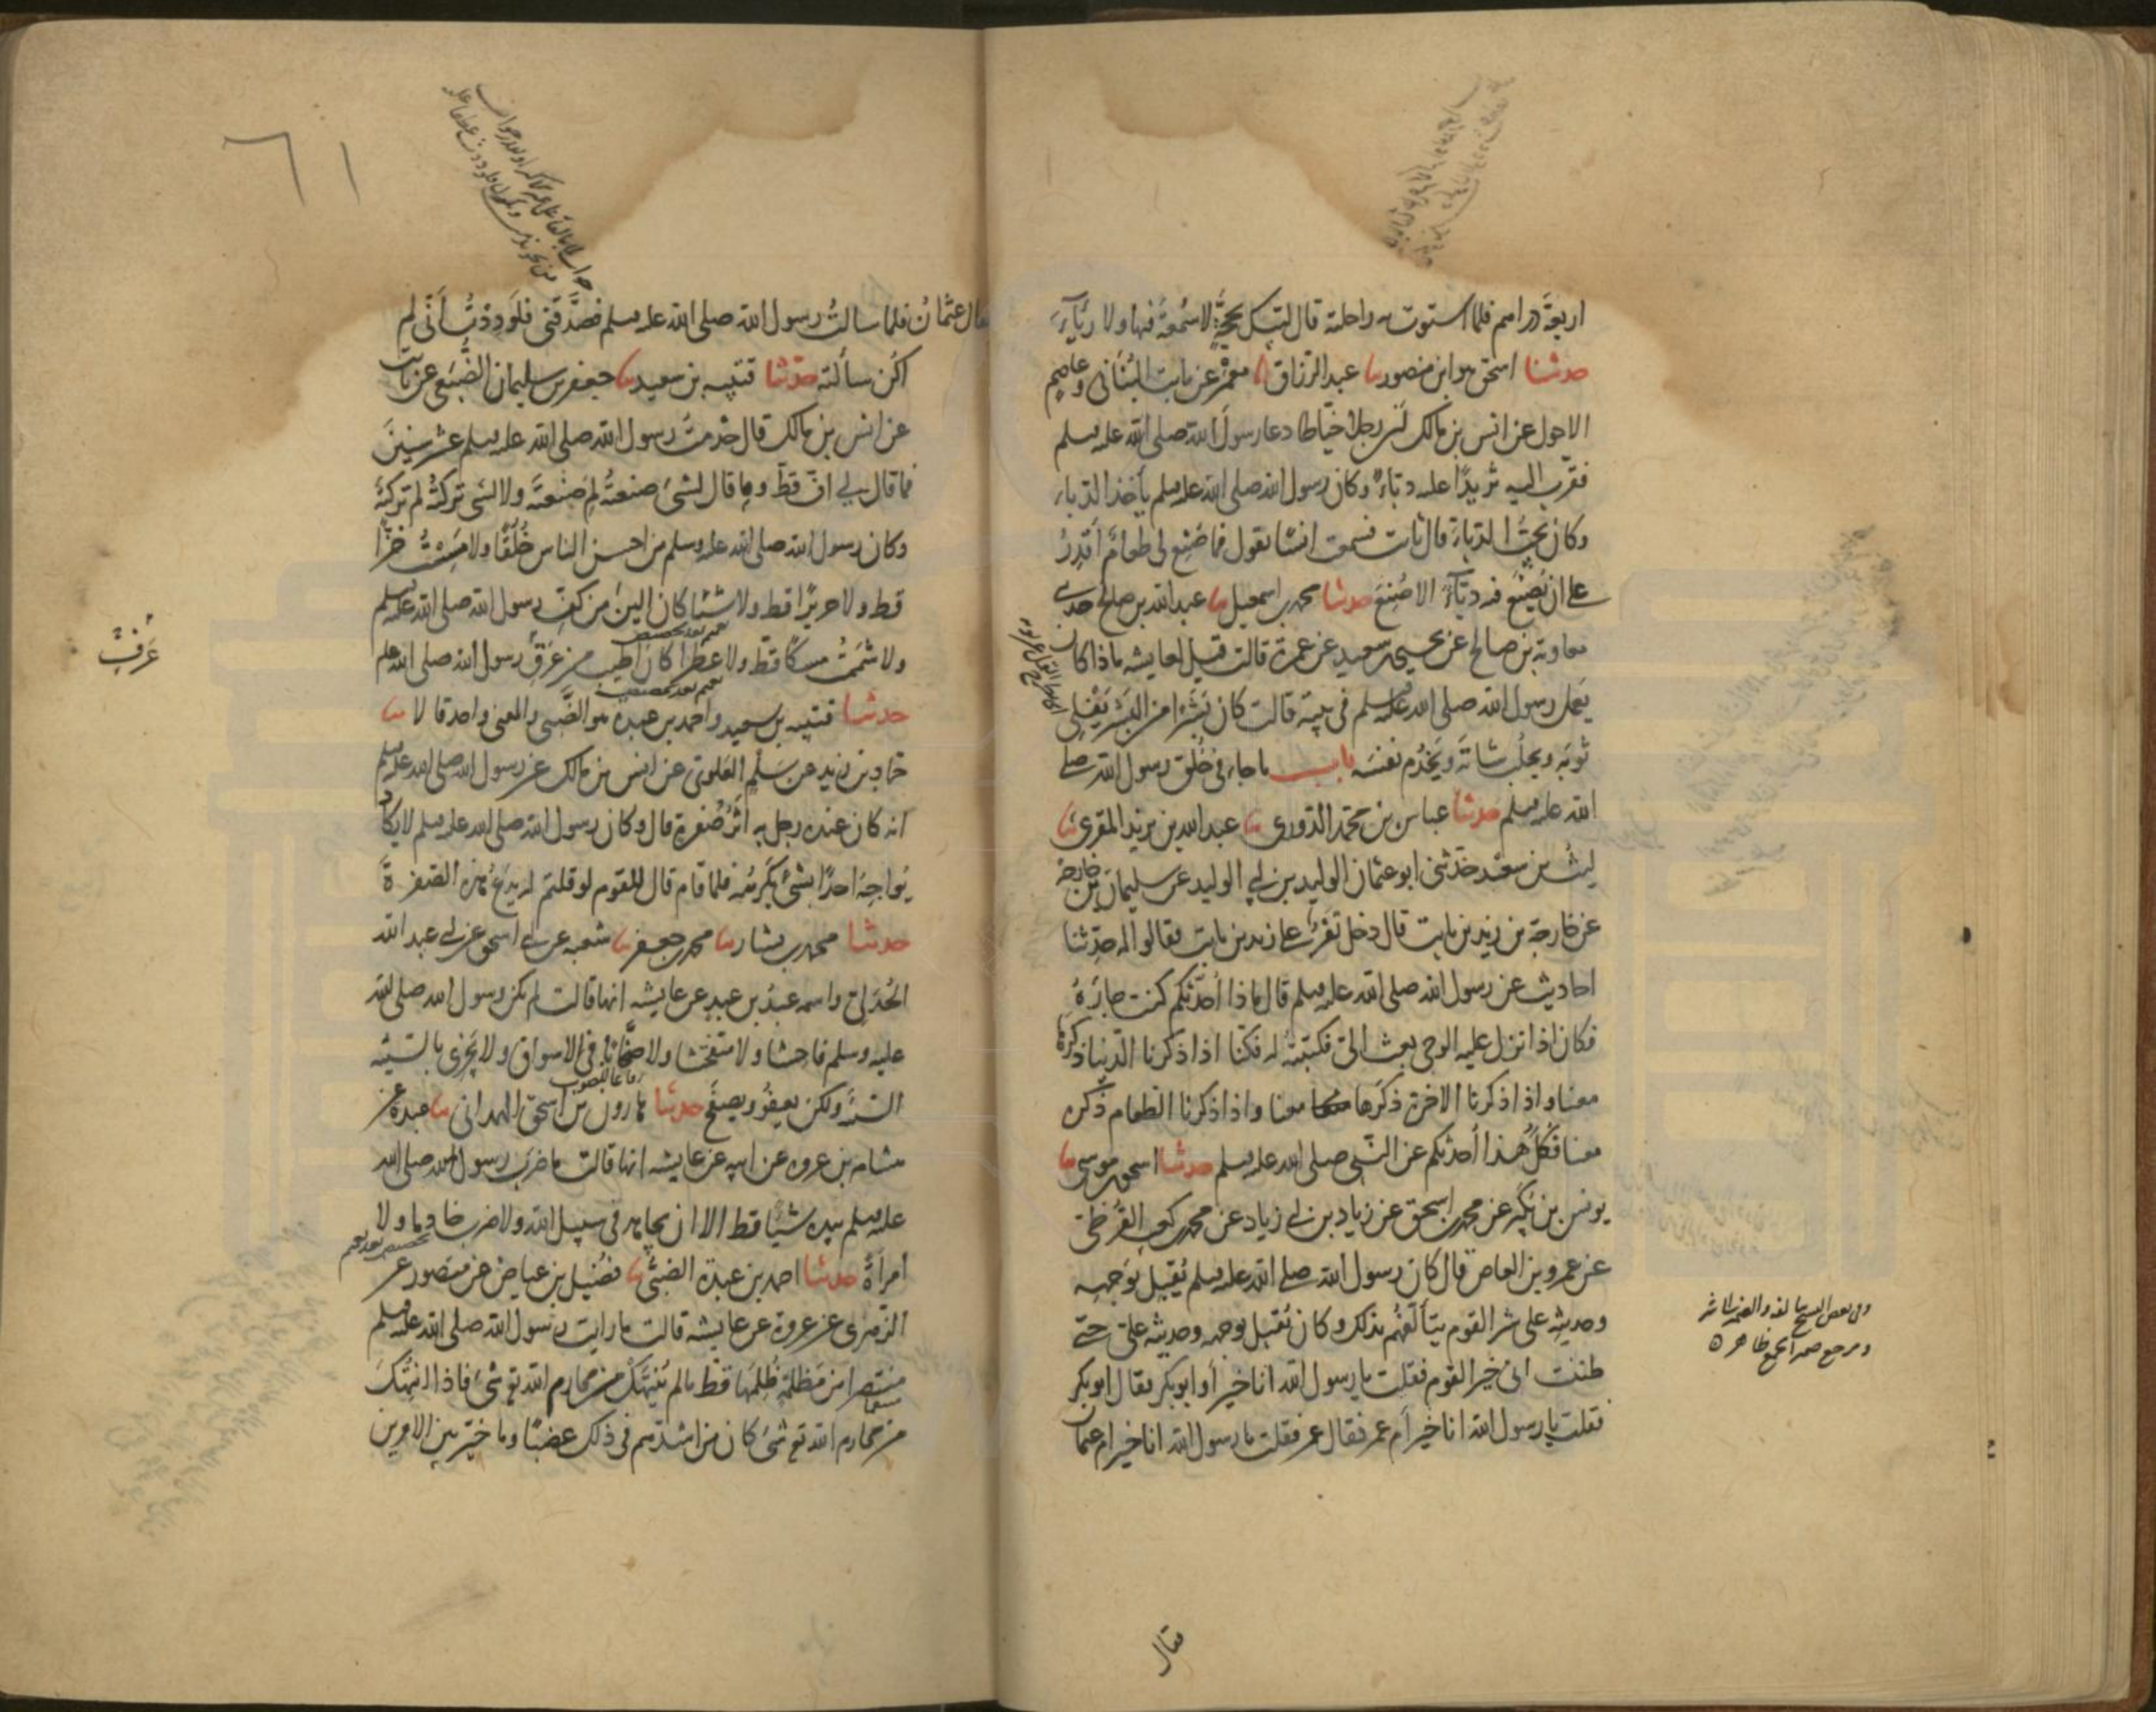 اربعة دراهم فلما استوت به راحلته قال لبيك بحجة لا سمعة فيها ولا رياء
حدثنا اسحق هو ابن منصور ثنا عبد الرزاق انا معمر عن ثابت البناني وعاصم
الاحول عن انس بن مالك ان رجلا خياطا دعا رسول الله صلى الله عليه وسلم
فقرب اليه ثريدا عليه دباء وكان رسول الله صلى الله عليه وسلم ياخذ الدباء
وكان يحب الدباء قال ثابت فسمعت انسا يقول فما صنع لي طعام اقدر
على ان يصنع فيه دباء الا صنع حدثنا محمد بن اسمعيل ثنا عبد الله بن صالح حدثني
معاوية بن صالح عن يحيى بن سعيد عن عمرة قالت قيل لعايشه ماذا كان
يعمل رسول الله صلى الله عليه وسلم في بيته قالت كان بشرا من البشر يفلي
ثوبه ويحلب شاته ويخدم نفسه باب ما جاء في خلق رسول الله صلى
الله عليه وسلم حدثنا عباس بن محمد الدوري ثنا عبد الله بن يزيد المقرئ ثنا
ليث بن سعد حدثني ابو عثمان الوليد بن ابي الوليد عن سليمان بن خارجة
عن خارجة بن زيد بن ثابت قال دخل نفر على زيد بن ثابت فقالوا له حدثنا
احاديث عن رسول الله صلى الله عليه وسلم قال ماذا احدثكم كنت جاره
فكان اذا نزل عليه الوحي بعث الي فكتبته له فكنا اذا ذكرنا الدنيا ذكرها
معنا واذا ذكرنا الاخرة ذكرها معنا واذا ذكرنا الطعام ذكره
معنا فكل هذا احدثكم عن النبي صلى الله عليه وسلم حدثنا اسحق بن موسى ثنا
يونس بن بكير عن محمد بن اسحق عن زياد بن ابي زياد عن محمد بن كعب القرظي
عن عمرو بن العاص قال كان رسول الله صلى الله عليه وسلم يقبل بوجهه
وحديثه على شر القوم يتألفهم بذلك وكان يقبل بوجهه وحديثه علي حتى
ظننت اني خير القوم فقلت يا رسول الله انا خير أو ابو بكر فقال ابو بكر
فقلت يا رسول الله انا خير أم عمر فقال عمر فقلت يا رسول الله انا خير ام عثمان
فقال
٦١
قال عثمان فلما سالت رسول الله صلى الله عليه وسلم فصدقني فلوددت أني لم
اكن سألته حدثنا قتيبه بن سعيد ثنا جعفر بن سليمان الضبعي عن ثابت
عن انس بن مالك قال خدمت رسول الله صلى الله عليه وسلم عشر سنين
فما قال لي اف قط وما قال لشئ صنعته لم صنعته ولا لشئ تركته لم تركته
وكان رسول الله صلى الله عليه وسلم من احسن الناس خلقا ولا مسست خزا
قط ولا حريرا قط ولا شيئا كان الين من كف رسول الله صلى الله عليه وسلم
ولا شممت مسكا قط ولا عطرا كان اطيب من عرق رسول الله صلى الله عليه
عَرْفِ
حدثنا قتيبه بن سعيد واحمد بن عبدة هو الضبي والمعنى واحد قالا ثنا
حماد بن زيد عن سلم العلوي عن انس بن مالك عن رسول الله صلى الله عليه وسلم
انه كان عنده رجل به أثر صفرة قال وكان رسول الله صلى الله عليه وسلم لا يكاد
يواجه احدا بشئ يكرهه فلما قام قال للقوم لو قلتم له يدع هذه الصفرة
حدثنا محمد بن بشار ثنا محمد بن جعفر ثنا شعبه عن ابي اسحق عن ابي عبد الله
الجدلي واسمه عبد بن عبد عن عايشه انها قالت لم يكن رسول الله صلى الله
عليه وسلم فاحشا ولا متفحشا ولا صخابا في الاسواق ولا يجزي بالسيئه
السيئة ولكن يعفو ويصفح حدثنا هارون بن اسحق الهمداني ثنا عبدة عن
هشام بن عروه عن ابيه عن عايشه انها قالت ما ضرب رسول الله صلى الله
عليه وسلم بيده شيئا قط الا ان يجاهد في سبيل الله ولا ضرب خادما ولا
امرأة حدثنا احمد بن عبدة الضبي ثنا فضيل بن عياض عن منصور عن
الزهري عن عروة عن عايشه قالت ما رايت رسول الله صلى الله عليه وسلم
منتصرا من مظلمة ظلمها قط ما لم ينتهك من محارم الله تع شئ فاذا انتهك
من محارم الله تع شئ كان من اشدهم في ذلك غضبا وما خير بين الامرين